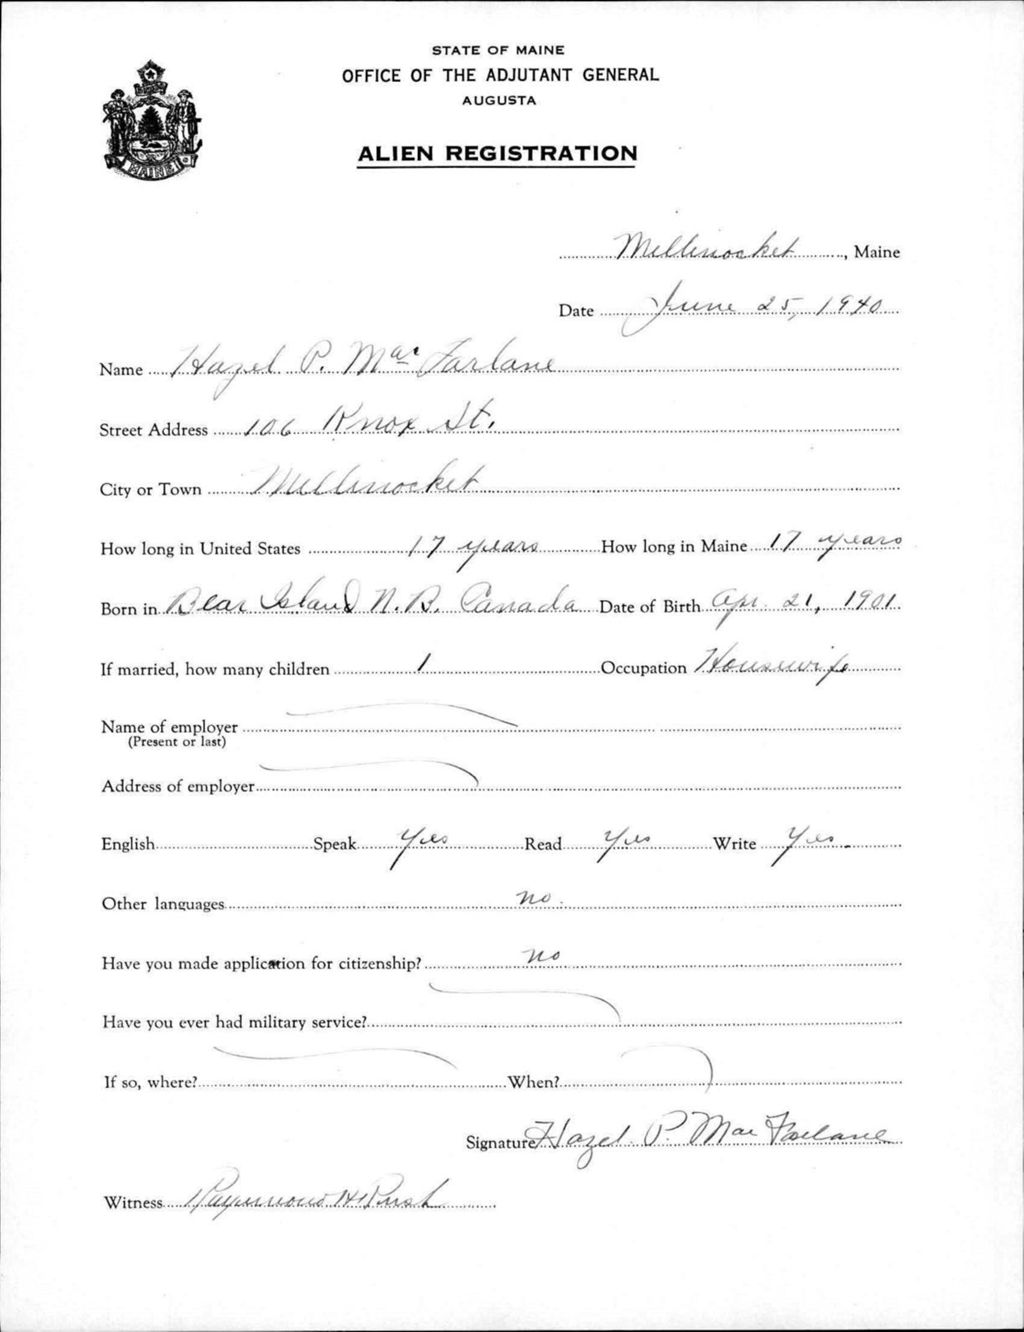 STATE OF MAINE
OFFICE OF THE ADJUTANT GENERAL
AUGUSTA
ALIEN REGISTRATION
MAINE
Millinocket, Maine
Date June 25, 1940
Name Hazel P. MacFarlane
Street Address 106 Knox St.
City or Town Millinocket
How long in United States 17 years How long in Maine 17 years
Born in Bear Island N.B. Canada Date of Birth Apr. 21, 1901
If married, how many children 1 Occupation Housewife
Name of employer
(Present or last)
Address of employer
English Speak Yes Read Yes Write Yes.
Other languages no.
Have you made application for citizenship? no
Have you ever had military service?
If so, where? When?
Signature Hazel P. MacFarlane
Witness Raymond H Rush